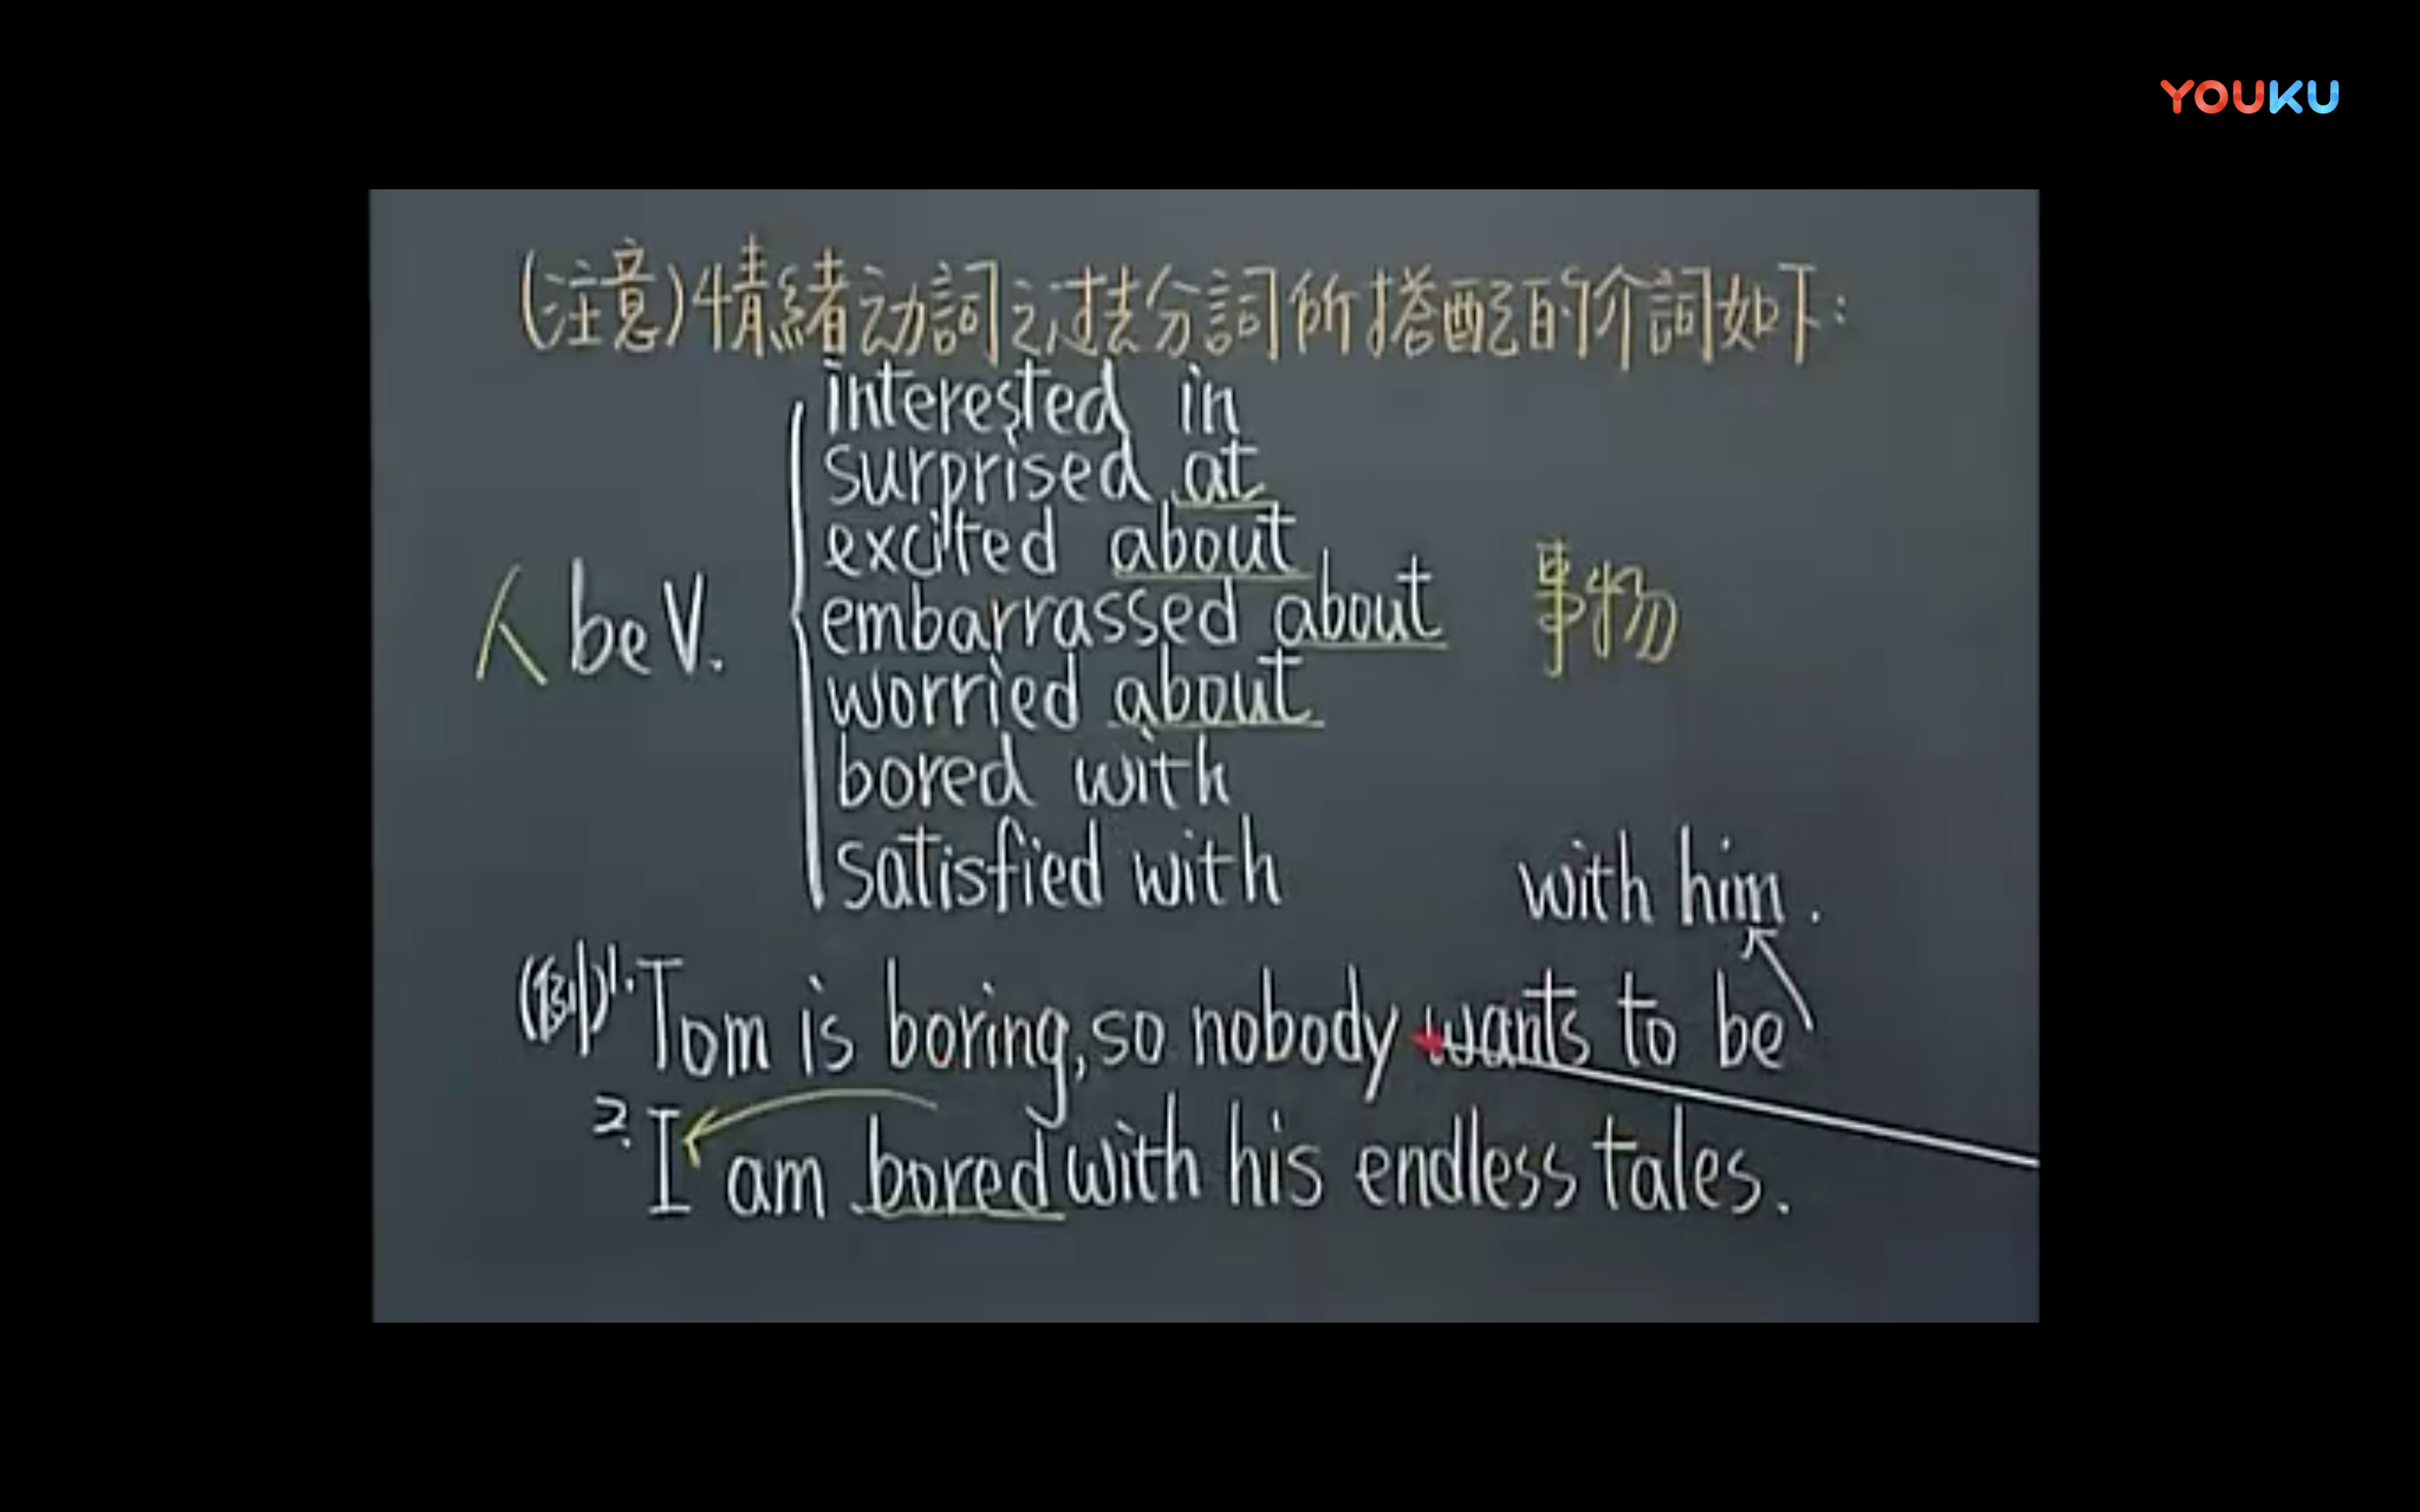 YOUKU
(注意)情緒动詞之过去分詞所搭配的介詞如下:
人 be V.
interested in
surprised at
excited about
embarrassed about
worried about
bored with
satisfied with
事物
(例)1. Tom is boring, so nobody wants to be
with him.
2. I am bored with his endless tales.